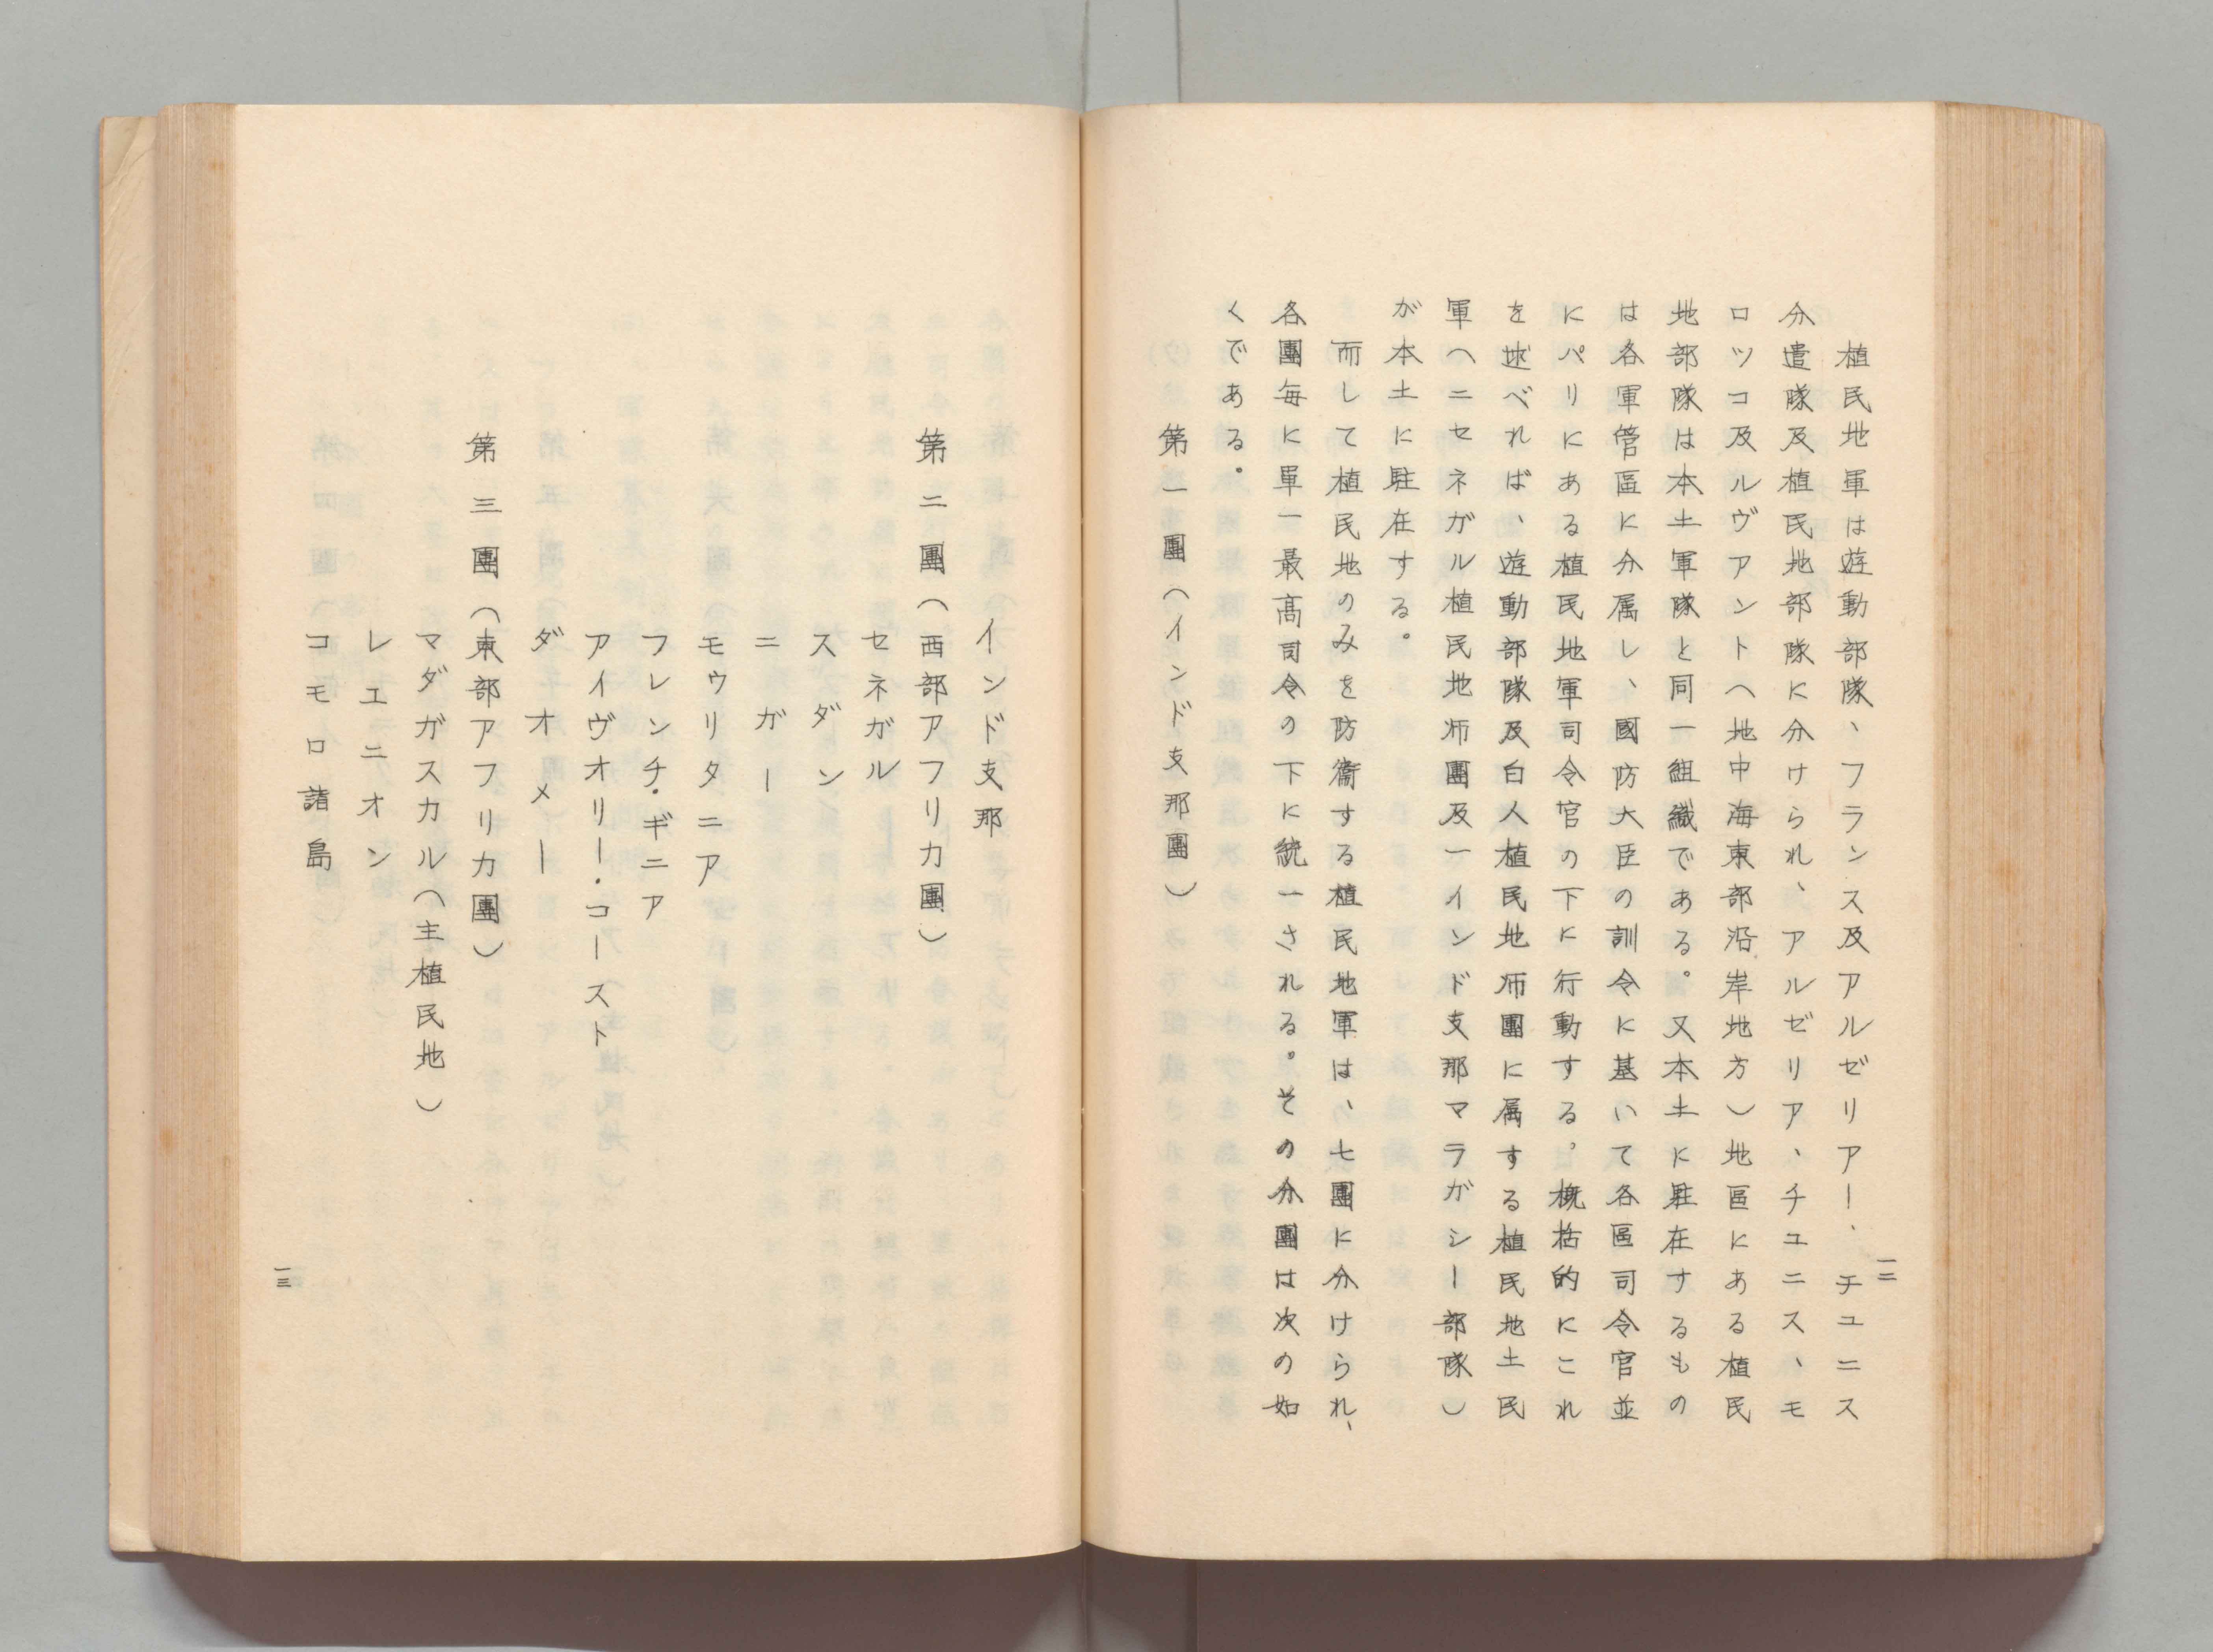 一二
植民地軍は遊動部隊、フランス及アルゼリアー、チユニス
分遣隊及植民地部隊に分けられ、アルゼリア、チユニス、モ
ロツコ及ルヴアント（地中海東部沿岸地方）地區にある植民
地部隊は本土軍隊と同一組織である。又本土に駐在するもの
は各軍管區に分属し、國防大臣の訓令に基いて各區司令官並
にパリにある植民地軍司令官の下に行動する。概括的にこれ
を述べれば、遊動部隊及白人植民地師團に属する植民地土民
軍（ニセネガル植民地師團及一インド支那マラガシー部隊）
が本土に駐在する。
而して植民地のみを防衞する植民地軍は、七團に分けられ、
各團毎に單一最高司令の下に統一される。その分團は次の如
くである。
第一團（インド支那團）
インド支那
第二團（西部アフリカ團）
セネガル
スダン
ニガー
モウリタニア
フレンチ・ギニア
アイヴオリー・コースト
ダオメー
第三團（東部アフリカ團）
マダガスカル（主植民地）
レエニオン
コモロ諸島
一三